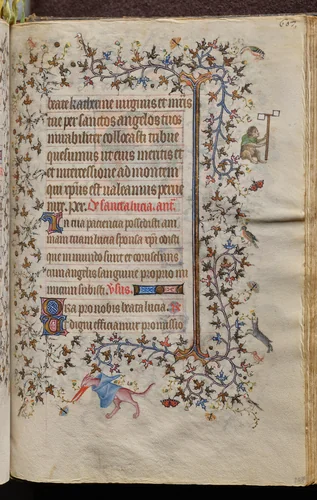 beate katherine virginis et mris
tue per sanctos angelos tuos
mirabiliter collocasti tribue
quesumus ut eius meritis et
et intercessione ad montem
qui xpus est valeamus perue
nire. Per. De sancta lucia. ant.
In tua paciencia possedisti am
mam tuam lucia sponsa xpi
que in mundo sunt et coruscans
cum angelis sanguine proprio mi
micum
Ora pro nobis beata lucia.
Ut digni efficiamur promissio